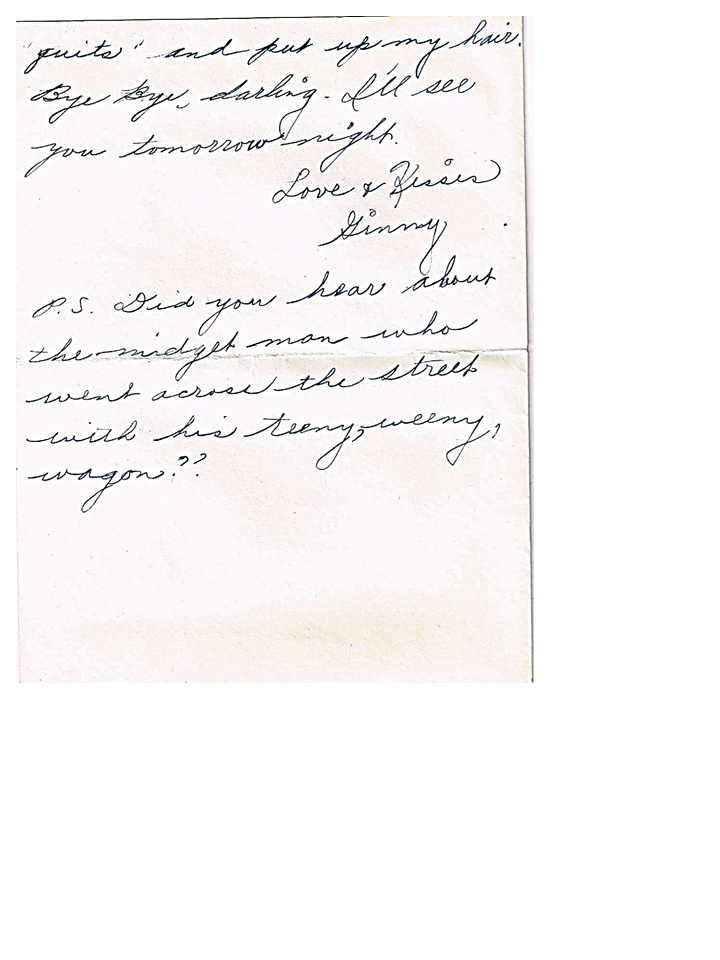 "quits" and put up my hair.
Bye Bye, darling. I'll see
you tomorrow night.
Love & Kisses
Ginny
P.S. Did you hear about
the midget man who
went across the street
with his teeny, weeny,
wagon??